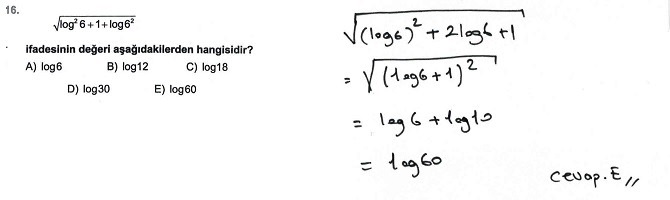 16.
√log²6+1+log6²
ifadesinin değeri aşağıdakilerden hangisidir?
A) log6 B) log12 C) log18
D) log30 E) log60
√(log6)²+2log6+1
= √(log6+1)²
= log6+log10
= log60
cevap.E//